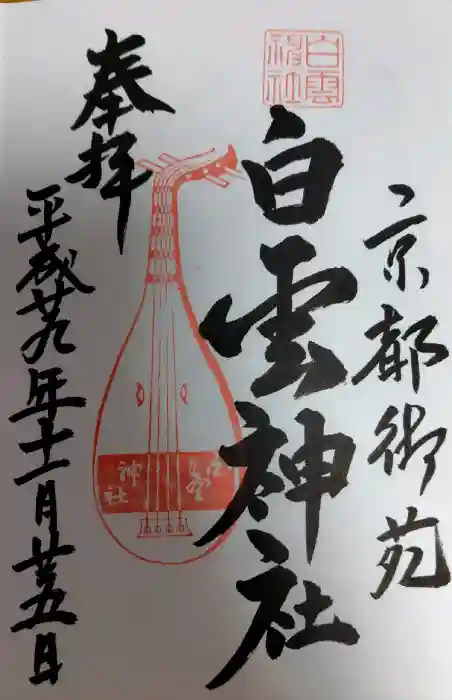 京都御苑
白雲神社
白雲神社
奉拝
白雲
神社
平成廿九年十一月廿五日